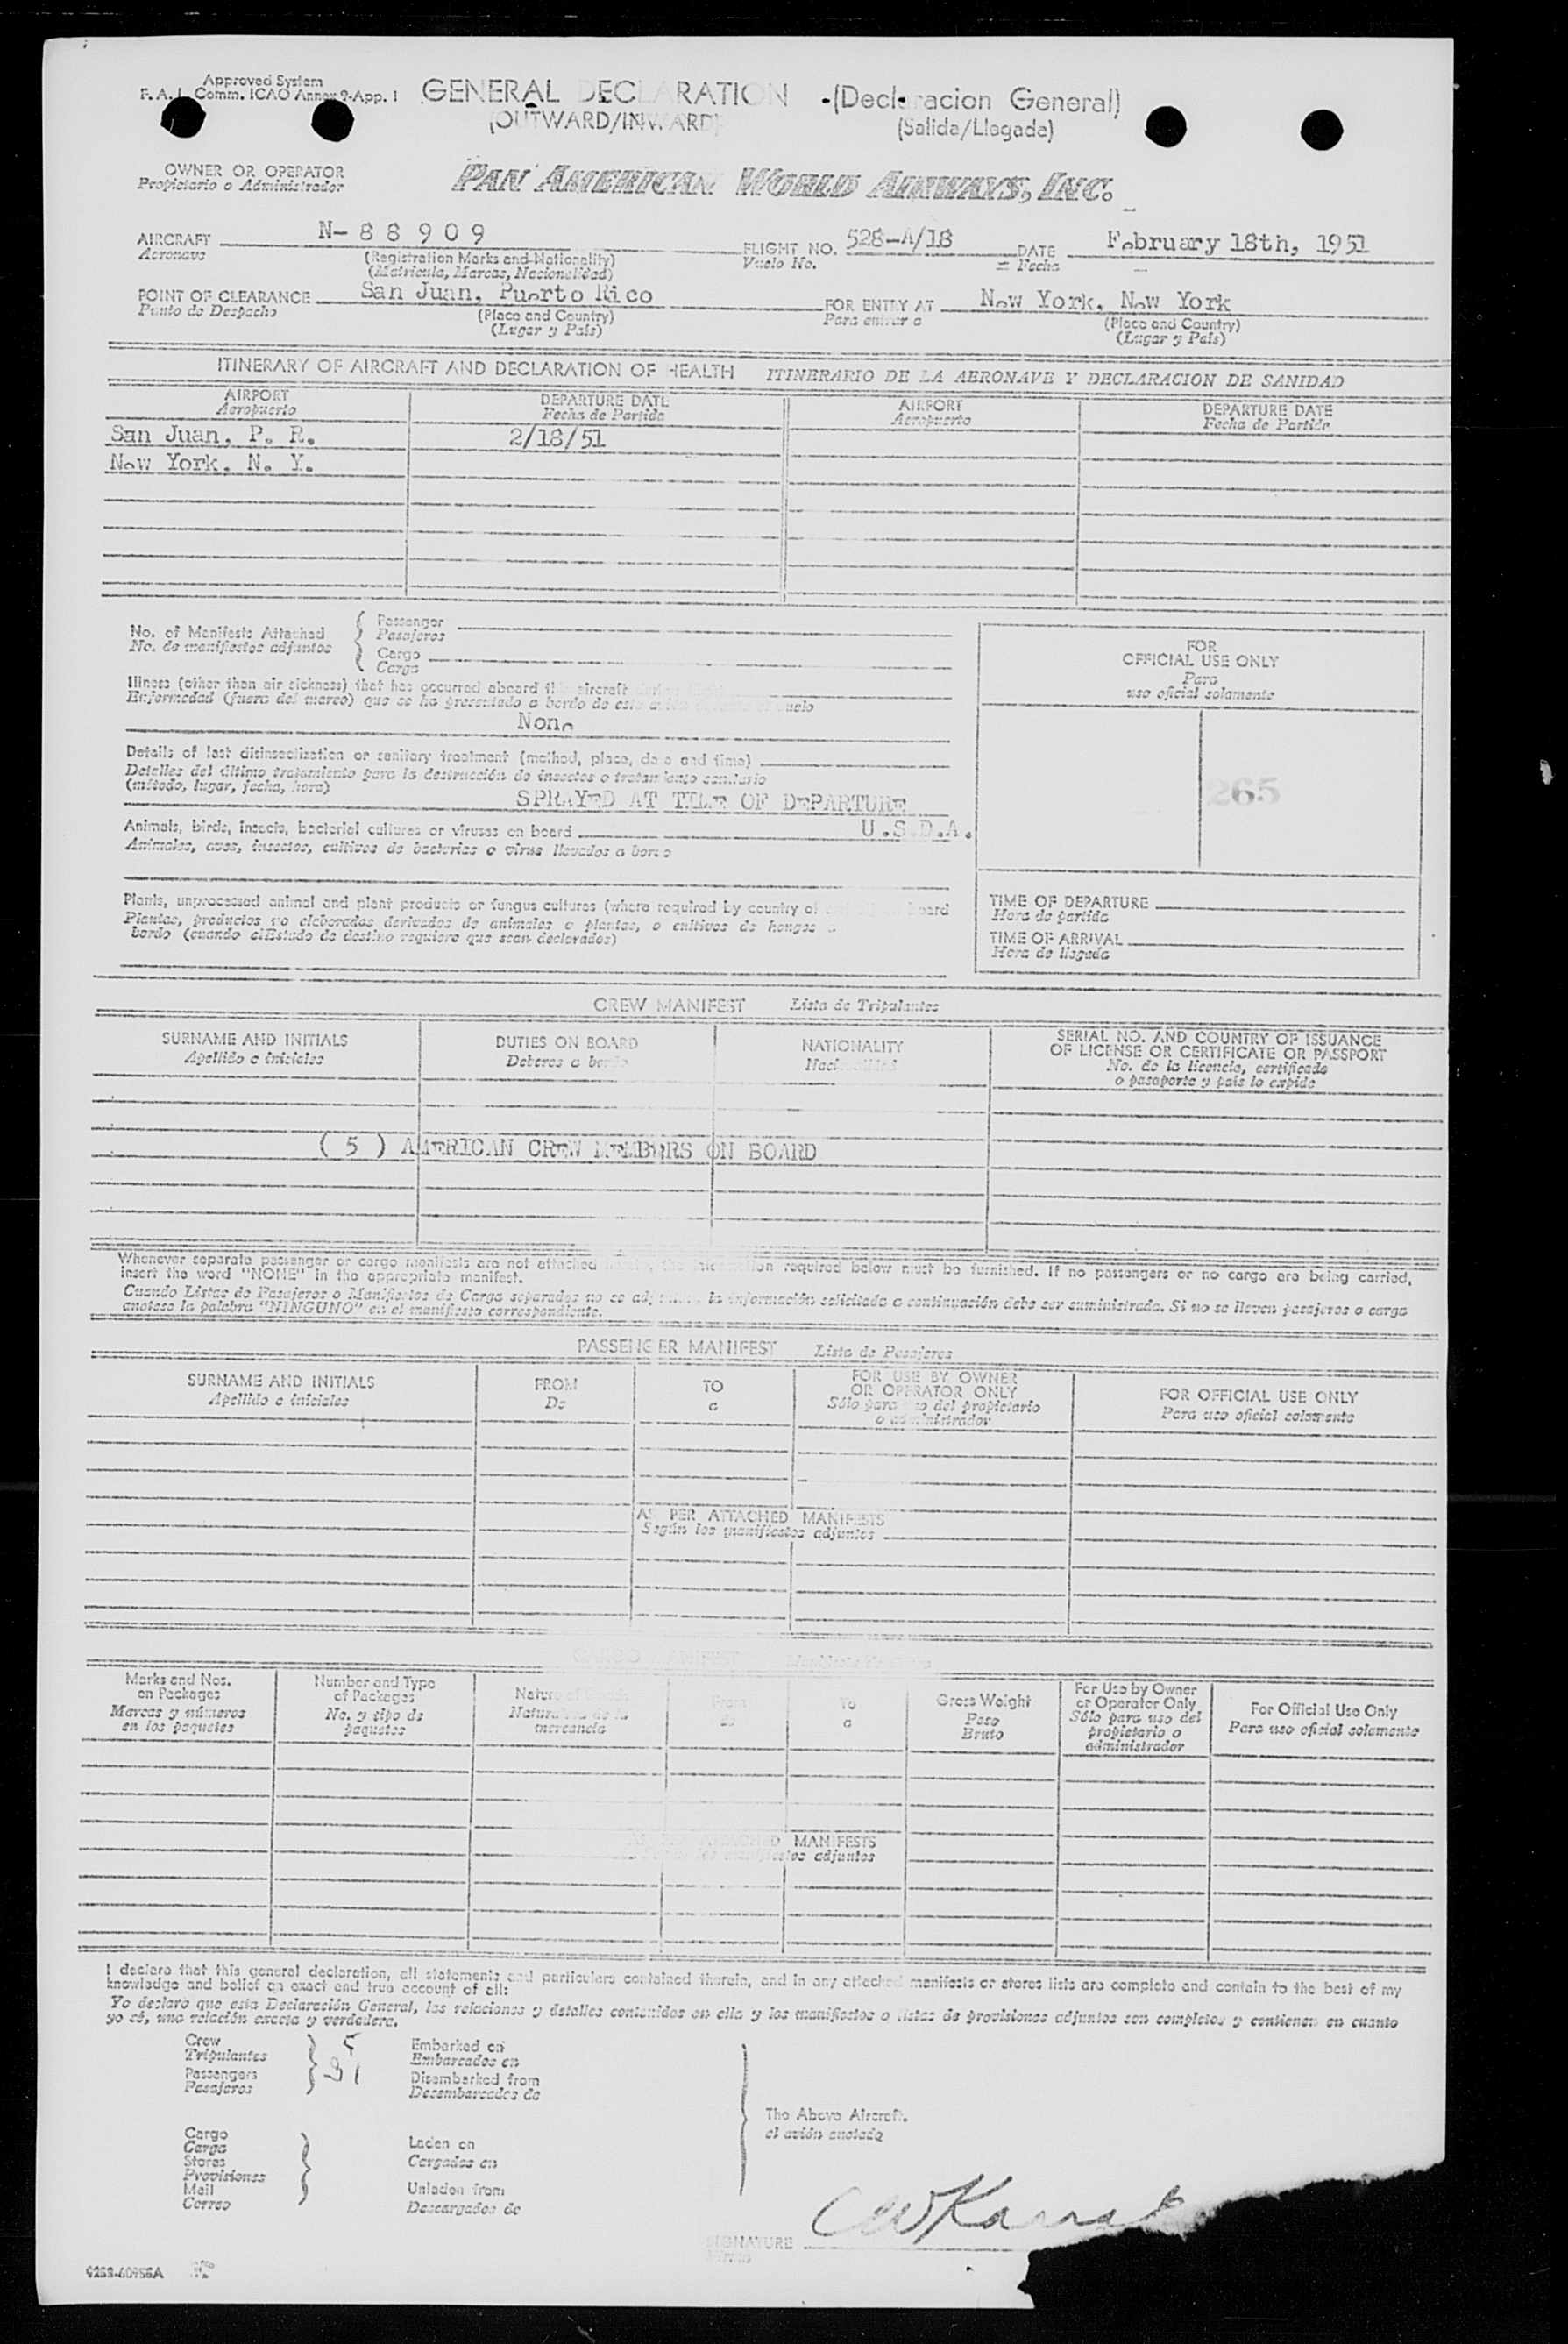 Approved System
F. A. L. Comm. ICAO Annex 9-App. 1
GENERAL DECLARATION -(Declaracion General)
(OUTWARD/INWARD) (Salida/Llegada)
OWNER OR OPERATOR
Propietario o Administrador
PAN AMERICAN WORLD AIRWAYS, INC.
AIRCRAFT N- 8 8 9 0 9 FLIGHT NO. 528-A/18 DATE February 18th, 1951
Aeronave (Registration Marks and Nationality) Vuelo No. Fecha
(Matrícula, Marcas, Nacionalidad)
POINT OF CLEARANCE San Juan, Puerto Rico FOR ENTRY AT New York, New York
Punto de Despacho (Place and Country) Para entrar a (Place and Country)
(Lugar y País) (Lugar y País)
ITINERARY OF AIRCRAFT AND DECLARATION OF HEALTH ITINERARIO DE LA AERONAVE Y DECLARACION DE SANIDAD
AIRPORT DEPARTURE DATE AIRPORT DEPARTURE DATE
Aeropuerto Fecha de Partida Aeropuerto Fecha de Partida
San Juan, P. R. 2/18/51
New York, N. Y.
No. of Manifests Attached Passenger
No. de manifiestos adjuntos Pasajeros
Cargo
Carga
FOR
OFFICIAL USE ONLY
Para
uso oficial solamente
Illness (other than air sickness) that has occurred aboard the aircraft
Enfermedad (fuera del mareo) que se ha presentado a bordo de este vuelo
None
Details of last disinsectization or sanitary treatment (method, place, date and time)
Detalles del último tratamiento para la destrucción de insectos o tratamiento sanitario
(método, lugar, fecha, hora)
SPRAYED AT TIME OF DEPARTURE
265
Animals, birds, insects, bacterial cultures or viruses on board U.S.D.A.
Animales, aves, insectos, cultivos de bacterias o virus llevados a bordo
Plants, unprocessed animal and plant products or fungus cultures (where required by country of board
Plantas, productos no elaborados derivados de animales o plantas, o cultivos de hongos a
bordo (cuando el Estado de destino requiere que sean declarados)
TIME OF DEPARTURE
Hora de partida
TIME OF ARRIVAL
Hora de llegada
CREW MANIFEST Lista de Tripulantes
SURNAME AND INITIALS DUTIES ON BOARD NATIONALITY SERIAL NO. AND COUNTRY OF ISSUANCE
OF LICENSE OR CERTIFICATE OR PASSPORT
Apellido e iniciales Deberes a bordo Nacionalidad No. de la licencia, certificado
o pasaporte y país lo expide
( 5 ) AMERICAN CREW MEMBERS ON BOARD
Whenever separate passenger or cargo manifests are not attached the information required below must be furnished. If no passengers or no cargo are being carried,
insert the word "NONE" in the appropriate manifest.
Cuando Listas de Pasajeros o Manifiestos de Carga separados no se adjuntan la información solicitada a continuación debe ser suministrada. Si no se lleven pasajeros o carga
anotese la palabra "NINGUNO" en el manifiesto correspondiente.
PASSENGER MANIFEST Lista de Pasajeros
SURNAME AND INITIALS FROM TO FOR USE BY OWNER
OR OPERATOR ONLY FOR OFFICIAL USE ONLY
Apellido e iniciales De a Sólo para uso del propietario
o administrador Para uso oficial solamente
AS PER ATTACHED MANIFESTS
Según los manifiestos adjuntos
Marks and Nos.
on Packages
Marcas y números
en los paquetes
Number and Type
of Packages
No. y tipo de
paquetes
Nature of Goods
Naturaleza de la
mercancía
From
de
To
a
Gross Weight
Peso
Bruto
For Use by Owner
or Operator Only
Sólo para uso del
propietario o
administrador
For Official Use Only
Para uso oficial solamente
ATTACHED MANIFESTS
los manifiestos adjuntos
I declare that this general declaration, all statements and particulars contained therein, and in any attached manifests or stores lists are complete and contain to the best of my
knowledge and belief an exact and true account of all:
Yo declaro que esta Declaración General, las relaciones y detalles contenidos en ella y los manifiestos o listas de provisiones adjuntos son completos y contienen en cuanto
yo sé, una relación exacta y verdadera.
Crew 5 Embarked on
Tripulantes Embarcados en
Passengers 31 Disembarked from
Pasajeros Desembarcados de
The Above Aircraft.
el avión anotado
Cargo
Carga Laden on
Stores
Provisiones Cargados en
Mail Unladen from
Correo Descargados de
SIGNATURE
Firma
9288-60955A